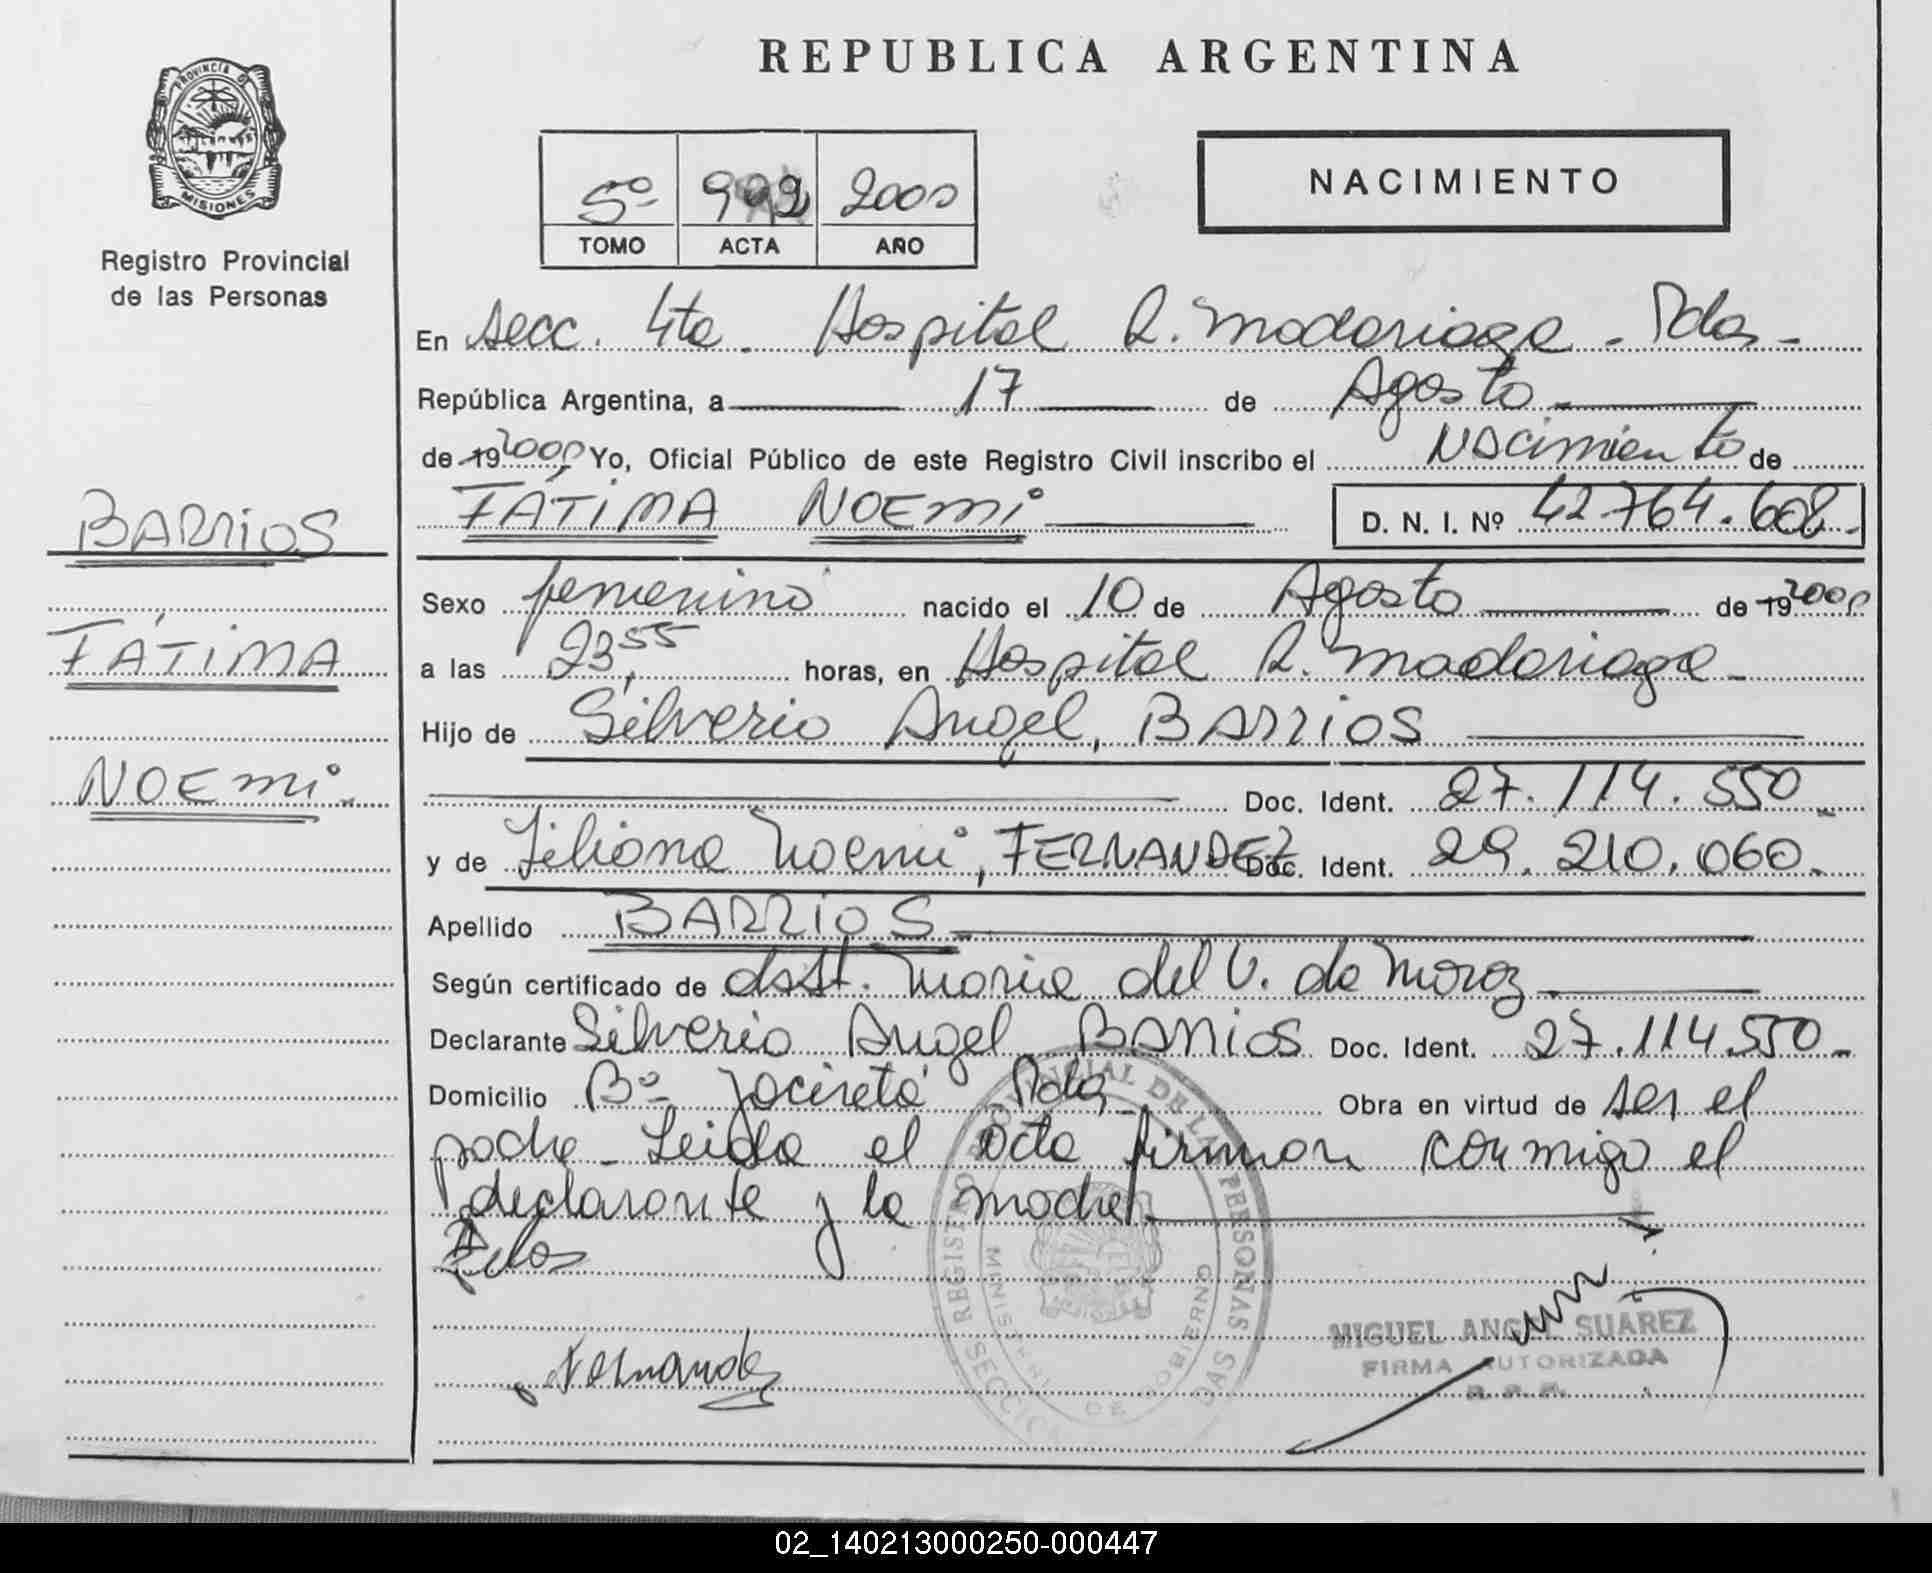 REPUBLICA ARGENTINA
PROVINCIA DE
MISIONES
Registro Provincial
de las Personas
5º 992 2000
TOMO ACTA AÑO
NACIMIENTO
En secc. 4ta. Hospital R. Madariaga - Pdas -
República Argentina, a 17 de Agosto
de 19 2000, Yo, Oficial Público de este Registro Civil inscribo el Nacimiento de
FÁTIMA NOEMi D. N. I. Nº 42.764.608.-
BARRIOS
FÁTIMA
NOEMi.
Sexo femenino nacido el 10 de Agosto de 19 2000
a las 23,55 horas, en Hospital R. Madariaga -
Hijo de Silverio Angel, BARRIOS
Doc. Ident. 27.114.550 -
y de Liliana Noemi, FERNANDEZ Doc. Ident. 29.210.060.-
Apellido BARRIOS
Según certificado de obst. Maria del V. de Moroz
Declarante Silverio Angel BARRIOS Doc. Ident. 27.114.550 -
Domicilio Bº Jacireta Pdas Obra en virtud de ser el
padre - Leida el acta firman conmigo el
declarante y la madre.
REGISTRO PROVINCIAL DE LAS PERSONAS
MINISTERIO DE GOBIERNO
SECCION
Fernandez
MIGUEL ANGEL SUAREZ
FIRMA AUTORIZADA
R. P. P.
02_140213000250-000447